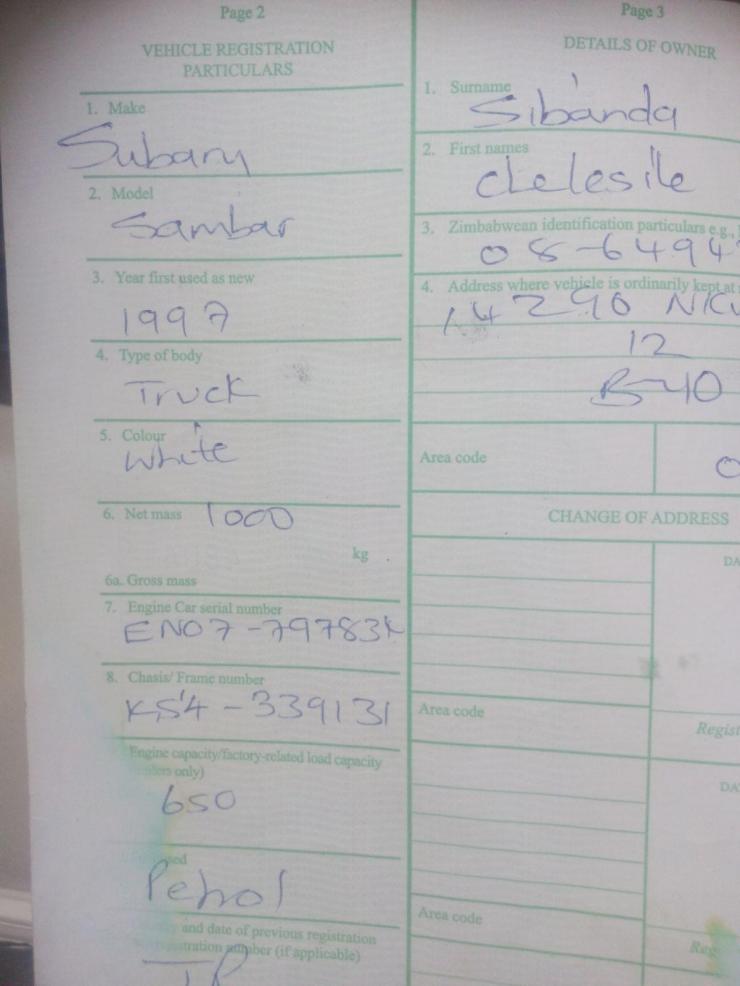 Page 2
VEHICLE REGISTRATION
PARTICULARS
1. Make
Subaru
2. Model
Sambar
3. Year first used as new
1997
4. Type of body
Truck
5. Colour
White
6. Net mass 1000
kg
6a. Gross mass
7. Engine Car serial number
EN07-79783
8. Chasis/ Frame number
KS4-339131
Engine capacity/factory-related load capacity
only)
650
Petrol
and date of previous registration
number (if applicable)
Page 3
DETAILS OF OWNER
1. Surname
Sibanda
2. First names
3. Zimbabwean identification particulars e.g.,
08-6494
4. Address where vehicle is ordinarily kept at
14290
12
Area code
CHANGE OF ADDRESS
DA
Area code
Regist
DA
Area code
Reg